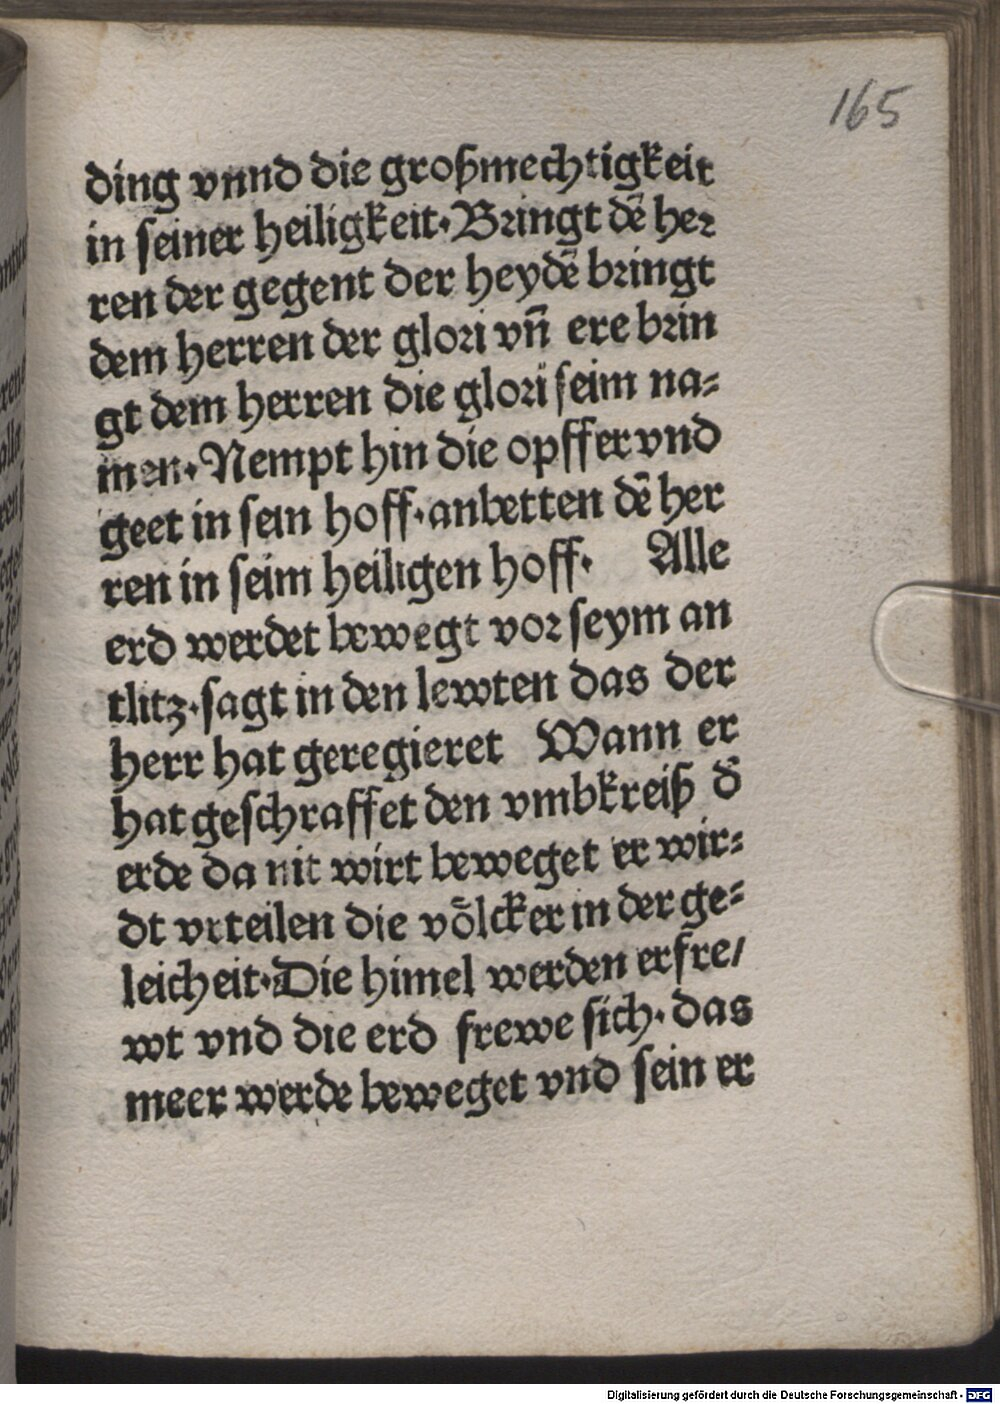 165
ding vnnd die großmechtigkeit
in seiner heiligkeit·Bringt dē her
ren der gegent der heydē bringt
dem herren der glori vn̄ ere brin
gt dem herren die glori seim na⸗
men·Nempt hin die opffer vnd
geet in sein hoff·anbetten dē her
ren in seim heiligen hoff· Alle
erd werdet bewegt vor seym an
tlitz·sagt in den lewten das der
herr hat geregieret Wann er
hat geschraffet den vmbkreiß d̄
erde da nit wirt beweget er wir⸗
dt vrteilen die vȫlcker in der ge⸗
leicheit·Die himel werden erfre/
wt vnd die erd frewe sich·das
meer werde beweget vnd sein er
Digitalisierung gefördert durch die Deutsche Forschungsgemeinschaft - DFG